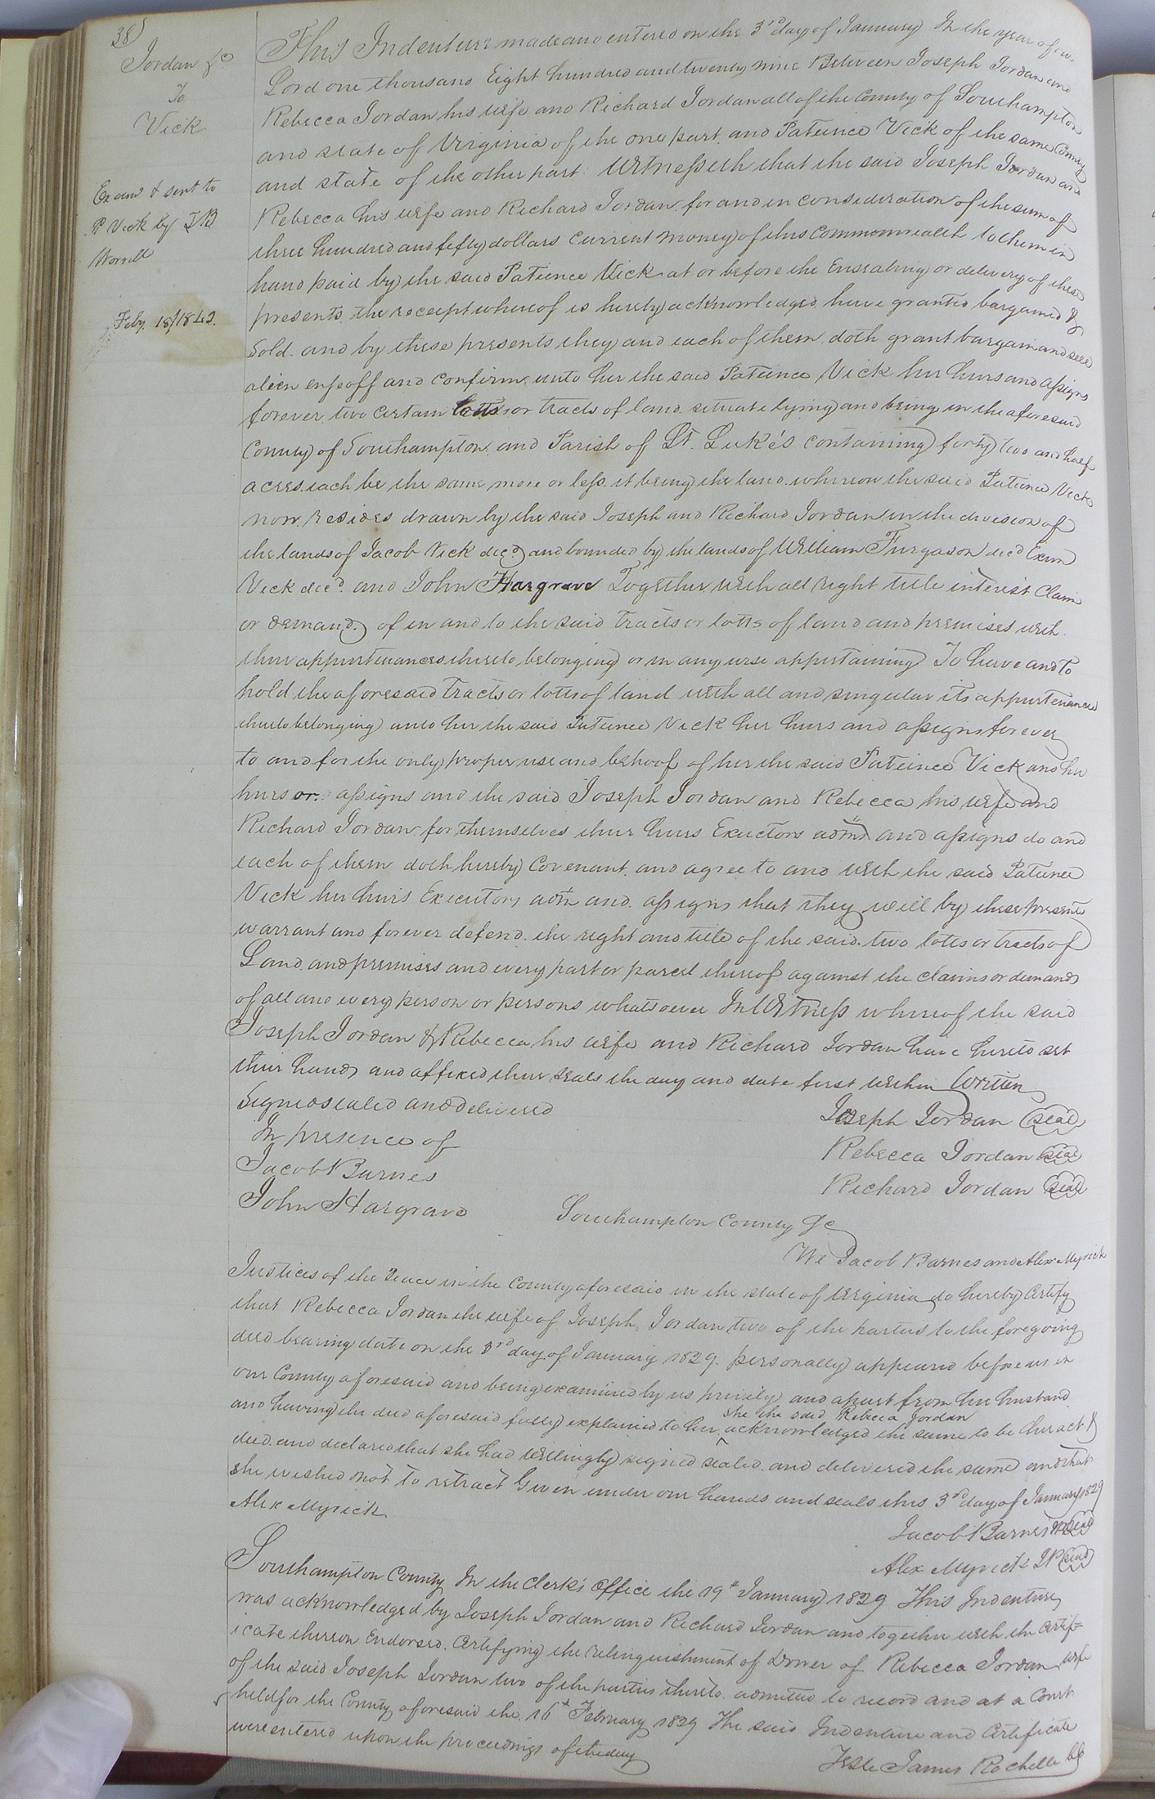 38
Jordan &c
To
Vick
Exam & sent to
P Vick by
Worrell
Feby 18/1843.
This Indenture made and entered on the 3rd day of January In the year of our
Lord one thousand Eight hundred and twenty nine Between Joseph Jordan and
Rebecca Jordan his wife and Richard Jordan all of the County of Southampton
and state of Virginia of the one part, and Patience Vick of the same County
and state of the other part. Witnesseth that the said Joseph Jordan and
Rebecca his wife and Richard Jordan for and in consideration of the sum of
three hundred and fifty dollars Current money of this Commonwealth to them in
hand paid by the said Patience Vick at or before the Ensealing or delivery of these
presents, the receipt whereof is hereby acknowledged have granted bargained &
Sold. and by these presents they and each of them doth grant bargain and sell
alien enfeoff and confirm unto her the said Patience Vick her heirs and assigns
forever two certain lotts or tracts of land situate lying and being in the aforesaid
County of Southampton and Parish of St. Luke's containing forty two and half
acres each be the same more or less it being the land whereon the said Patience Vick
now resides drawn by the said Joseph and Richard Jordan in the division of
the lands of Jacob Vick decd and bounded by the lands of William Furgason decd Exum
Vick decd. and John Hargrave Together with all right title interest Claim
or demand of in and to the said tracts or lotts of land and premises with
their appurtenances thereto belonging or in any wise appertaining To have and to
hold the aforesaid tracts or lotts of land with all and singular its appurtenances
thereto belonging unto her the said Patience Vick her heirs and assigns forever
to and for the only proper use and behoof of her the said Patience Vick and her
heirs or assigns and the said Joseph Jordan and Rebecca his wife and
Richard Jordan for themselves their heirs Executors admrs and assigns do and
each of them doth hereby Covenant and agree to and with the said Patience
Vick her heirs Executors admrs and assigns that they will by these presents
warrant and forever defend the right and title of the said two lotts or tracts of
Land and premises and every part or parcel thereof against the claims or demands
of all and every person or persons whatsoever In Witness whereof the said
Joseph Jordan & Rebecca his wife and Richard Jordan have hereto set
their hands and affixed their seals the day and date first within Written
Signed sealed and delivered
In presence of
Jacob Barnes
John Hargrave
Joseph Jordan (Seal)
Rebecca Jordan (Seal)
Richard Jordan (Seal)
Southampton County Sc
We Jacob Barnes and Alex Myrick
Justices of the Peace in the County aforesaid in the state of Virginia do hereby Certify
that Rebecca Jordan the wife of Joseph Jordan two of the parties to the foregoing
deed bearing date on the 3rd day of January 1829. personally appeared before us in
our County aforesaid and being examined by us privily and apart from her husband
and having the deed aforesaid fully explained to her she the said Rebecca Jordan acknowledged the same to be her act &
deed and declared that she had willingly signed sealed and delivered the same and that
she wished not to retract Given under our hands and seals this 3rd day of January 1829
Alex Myrick
Jacob Barnes (Seal)
Alex Myrick JP (Seal)
Southampton County In the Clerk's Office the 19th January 1829 This Indenture
was acknowledged by Joseph Jordan and Richard Jordan and together with the Certif-
icate thereon Endorsed, Certifying the relinquishment of Dower of Rebecca Jordan wife
of the said Joseph Jordan two of the parties thereto admitted to record and at a Court
held for the County aforesaid the 16th February 1829 The said Indenture and Certificate
were entered upon the proceedings of the day
Teste James Rochelle CC